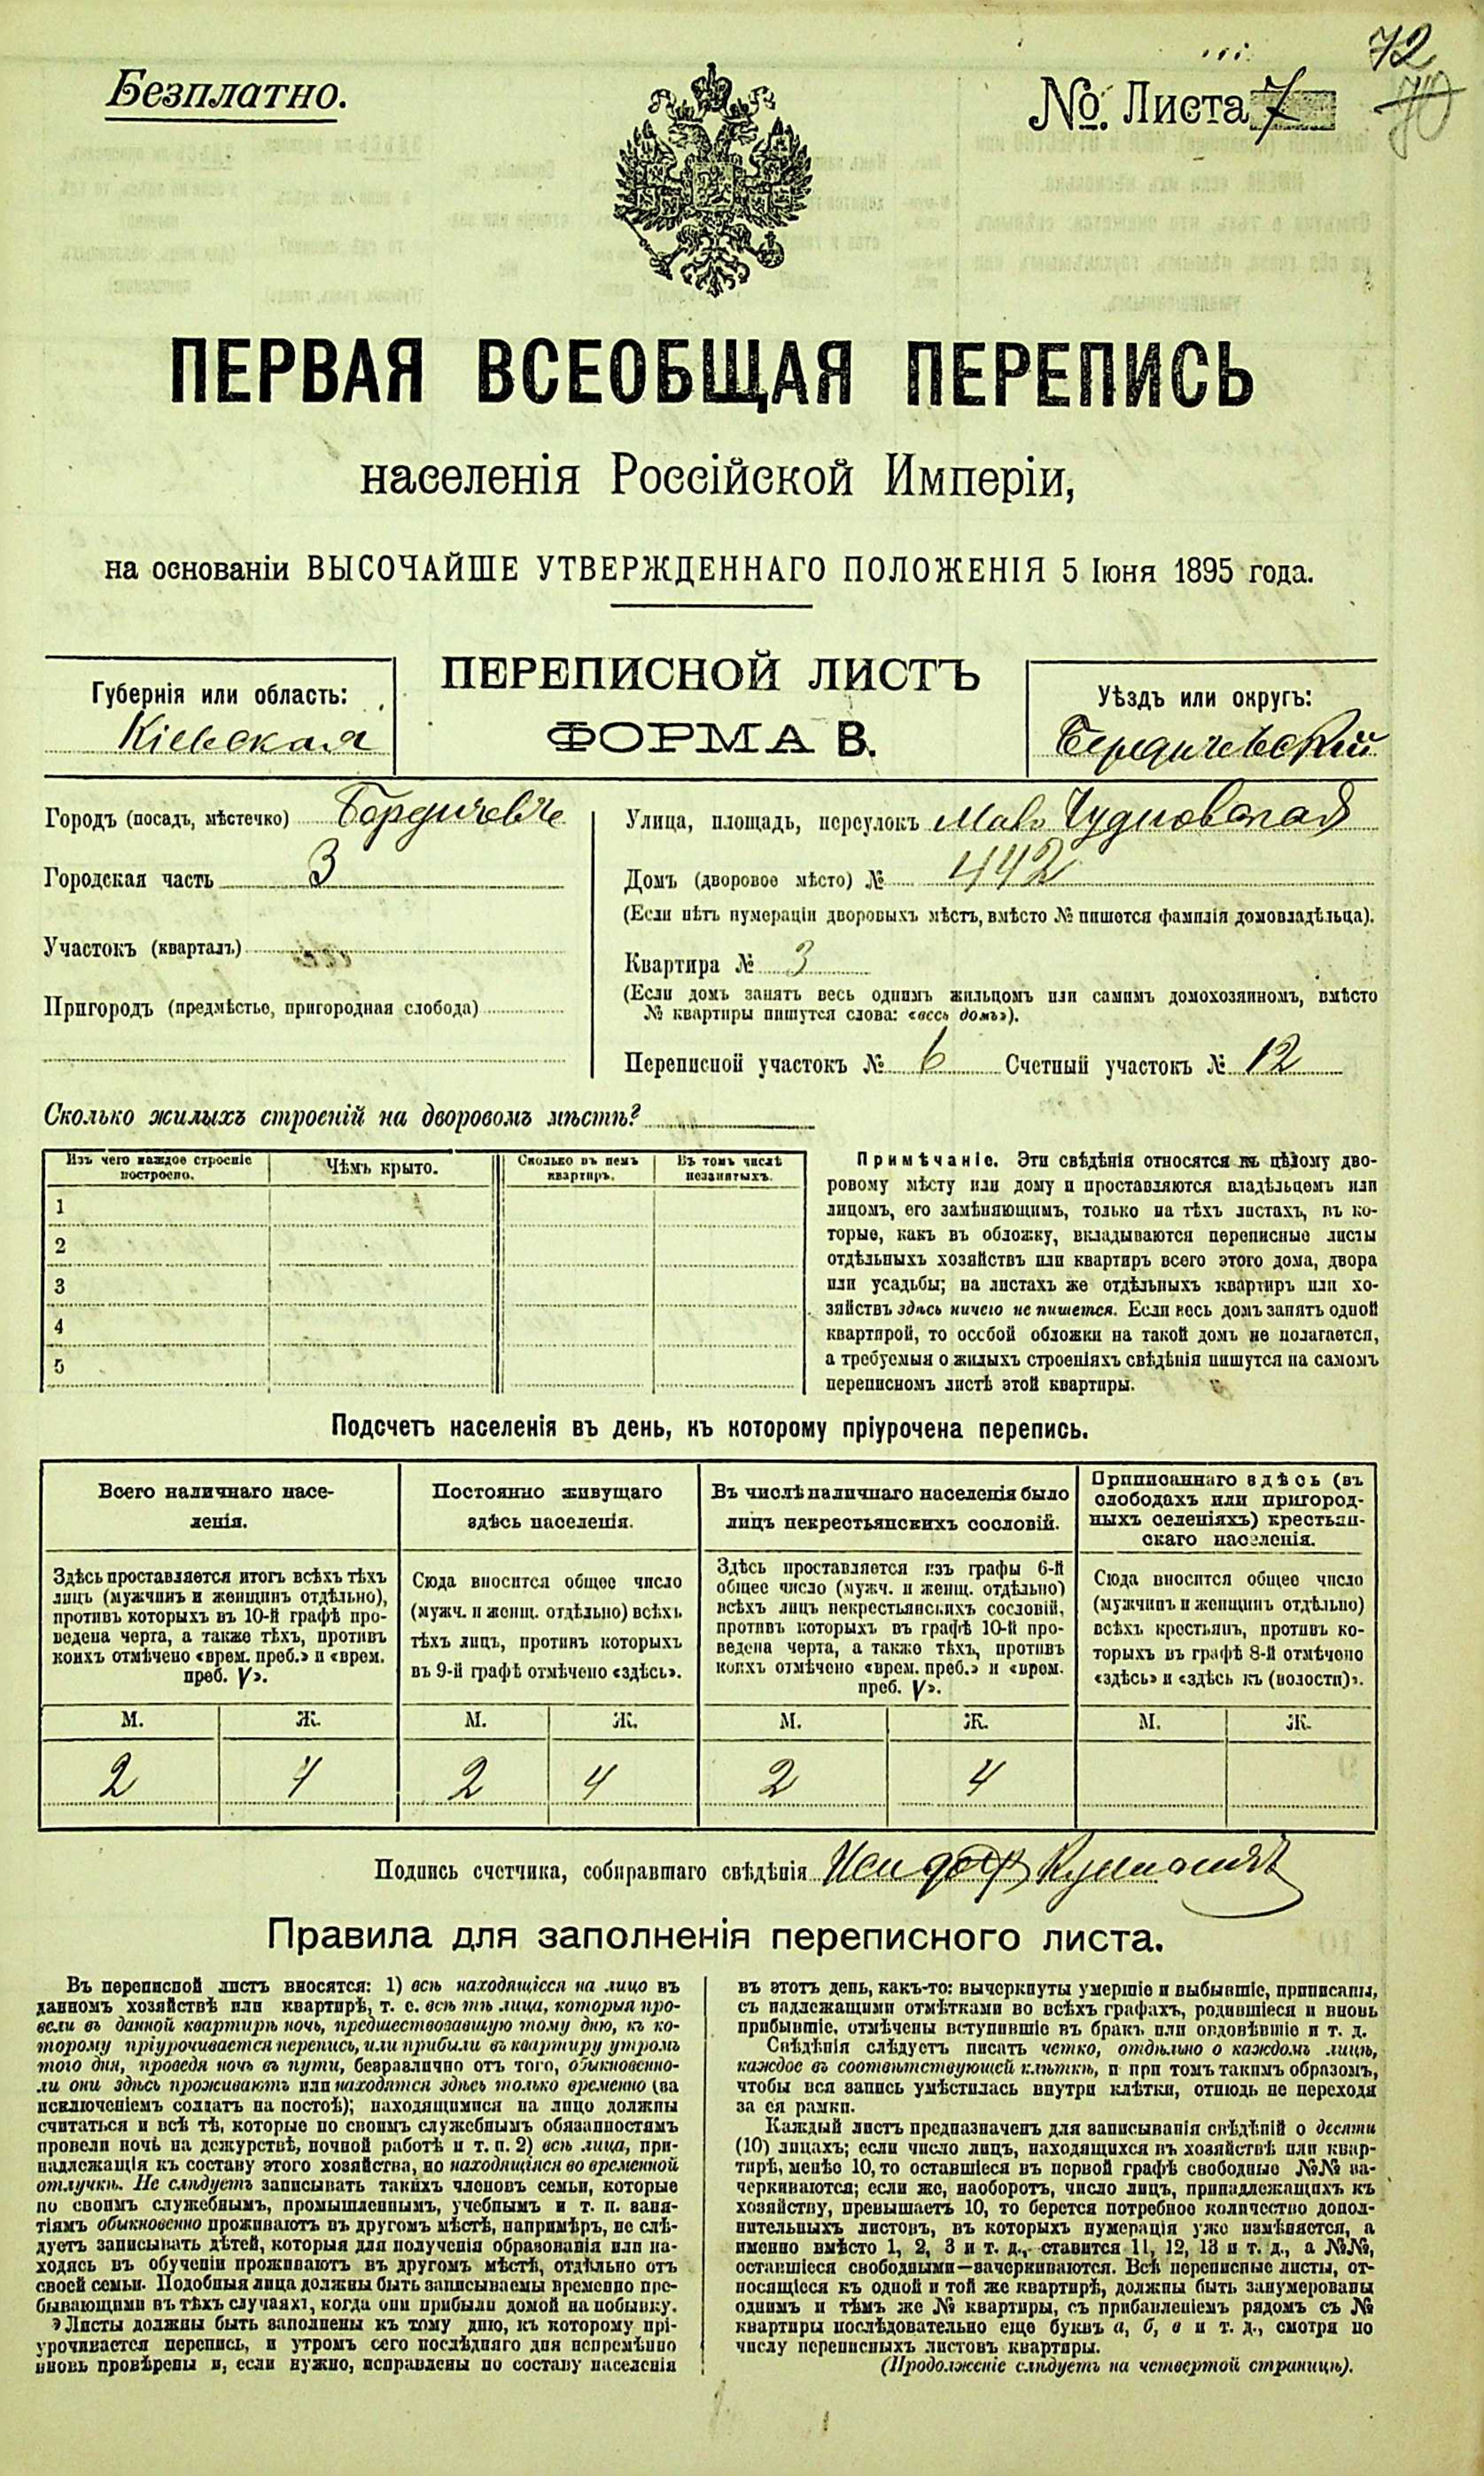 Безплатно.
№ Листа 7
72
70
ПЕРВАЯ ВСЕОБЩАЯ ПЕРЕПИСЬ
населенія Россійской Имперіи,
на основаніи ВЫСОЧАЙШЕ УТВЕРЖДЕННАГО ПОЛОЖЕНІЯ 5 Іюня 1895 года.
ПЕРЕПИСНОЙ ЛИСТЪ
ФОРМА В.
Губернія или область:
Кіевская
Уѣздъ или округъ:
Бердичевскій
Городъ (посадъ, мѣстечко) Бердичевъ
Городская часть 3
Участокъ (кварталъ)
Пригородъ (предмѣстье, пригородная слобода)
Улица, площадь, переулокъ Мал. Чудновская
Домъ (дворовое мѣсто) № 442
(Если нѣтъ нумераціи дворовыхъ мѣстъ, вмѣсто № пишется фамилія домовладѣльца).
Квартира № 3
(Если домъ занятъ весь однимъ жильцомъ или самимъ домохозяиномъ, вмѣсто
№ квартиры пишутся слова: «весь домъ»).
Переписной участокъ № 6 Счетный участокъ № 12
Сколько жилыхъ строеній на дворовомъ мѣстѣ?
Изъ чего каждое строеніе
построено.
Чѣмъ крыто.
Сколько въ немъ
квартиръ.
Въ томъ числѣ
незанятыхъ.
1
2
3
4
5
Примѣчаніе. Эти свѣдѣнія относятся къ цѣлому дво-
ровому мѣсту или дому и проставляются владѣльцемъ или
лицомъ, его замѣняющимъ, только на тѣхъ листахъ, въ ко-
торые, какъ въ обложку, вкладываются переписные листы
отдѣльныхъ хозяйствъ или квартиръ всего этого дома, двора
или усадьбы; на листахъ же отдѣльныхъ квартиръ или хо-
зяйствъ здѣсь ничего не пишется. Если весь домъ занятъ одной
квартирой, то особой обложки на такой домъ не полагается,
а требуемыя о жилыхъ строеніяхъ свѣдѣнія пишутся на самомъ
переписномъ листѣ этой квартиры.
Подсчетъ населенія въ день, къ которому пріурочена перепись.
Всего наличнаго насе-
ленія.
Постоянно живущаго
здѣсь населенія.
Въ числѣ наличнаго населенія было
лицъ некрестьянскихъ сословій.
Приписаннаго здѣсь (въ
слободахъ или пригород-
ныхъ селеніяхъ) крестьян-
скаго населенія.
Здѣсь проставляется итогъ всѣхъ тѣхъ
лицъ (мужчинъ и женщинъ отдѣльно),
противъ которыхъ въ 10-й графѣ про-
ведена черта, а также тѣхъ, противъ
коихъ отмѣчено «врем. преб.» и «врем.
преб. V».
Сюда вносится общее число
(мужч. и женщ. отдѣльно) всѣхъ
тѣхъ лицъ, противъ которыхъ
въ 9-й графѣ отмѣчено «здѣсь».
Здѣсь проставляется изъ графы 6-й
общее число (мужч. и женщ. отдѣльно)
всѣхъ лицъ некрестьянскихъ сословій,
противъ которыхъ въ графѣ 10-й про-
ведена черта, а также тѣхъ, противъ
коихъ отмѣчено «врем. преб.» и «врем.
преб. V».
Сюда вносится общее число
(мужчинъ и женщинъ отдѣльно)
всѣхъ крестьянъ, противъ ко-
торыхъ въ графѣ 8-й отмѣчено
«здѣсь» и «здѣсь къ (волости)».
М. Ж. М. Ж. М. Ж. М. Ж.
2 4 2 4 2 4
Подпись счетчика, собиравшаго свѣдѣнія Исидоръ
Правила для заполненія переписного листа.
Въ переписной листъ вносятся: 1) всѣ находящіеся на лицо въ
данномъ хозяйствѣ или квартирѣ, т. е. всѣ тѣ лица, которыя про-
вели въ данной квартирѣ ночь, предшествовавшую тому дню, къ ко-
торому пріурочивается перепись, или прибыли въ квартиру утромъ
того дня, проведя ночь въ пути, безразлично отъ того, обыкновенно-
ли они здѣсь проживаютъ или находятся здѣсь только временно (за
исключеніемъ солдатъ на постоѣ); находящимися на лицо должны
считаться и всѣ тѣ, которые по своимъ служебнымъ обязанностямъ
провели ночь на дежурствѣ, ночной работѣ и т. п. 2) всѣ лица, при-
надлежащія къ составу этого хозяйства, но находящіяся во временной
отлучкѣ. Не слѣдуетъ записывать такихъ членовъ семьи, которые
по своимъ служебнымъ, промышленнымъ, учебнымъ и т. п. заня-
тіямъ обыкновенно проживаютъ въ другомъ мѣстѣ, напримѣръ, не слѣ-
дуетъ записывать дѣтей, которыя для полученія образованія или на-
ходясь въ обученіи проживаютъ въ другомъ мѣстѣ, отдѣльно отъ
своей семьи. Подобныя лица должны быть записываемы временно пре-
бывающими въ тѣхъ случаяхъ, когда они прибыли домой на побывку.
Листы должны быть заполнены къ тому дню, къ которому прі-
урочивается перепись, и утромъ сего послѣдняго дня непремѣнно
вновь провѣрены и, если нужно, исправлены по составу населенія
въ этотъ день, какъ-то: вычеркнуты умершіе и выбывшіе, приписаны,
съ надлежащими отмѣтками во всѣхъ графахъ, родившіеся и вновь
прибывшіе, отмѣчены вступившіе въ бракъ или овдовѣвшіе и т. д.
Свѣдѣнія слѣдуетъ писать четко, отдѣльно о каждомъ лицѣ,
каждое въ соотвѣтствующей клѣткѣ, и при томъ такимъ образомъ,
чтобы вся запись умѣстилась внутри клѣтки, отнюдь не переходя
за ея рамки.
Каждый листъ предназначенъ для записыванія свѣдѣній о десяти
(10) лицахъ; если число лицъ, находящихся въ хозяйствѣ или квар-
тирѣ, менѣе 10, то оставшіеся въ первой графѣ свободные №№ за-
черкиваются; если же, наоборотъ, число лицъ, принадлежащихъ къ
хозяйству, превышаетъ 10, то берется потребное количество допол-
нительныхъ листовъ, въ которыхъ нумерація уже измѣняется, а
именно вмѣсто 1, 2, 3 и т. д., ставится 11, 12, 13 и т. д., а №№,
оставшіеся свободными—зачеркиваются. Всѣ переписные листы, от-
носящіеся къ одной и той же квартирѣ, должны быть занумерованы
однимъ и тѣмъ же № квартиры, съ прибавленіемъ рядомъ съ №
квартиры послѣдовательно еще буквъ а, б, в и т. д., смотря по
числу переписныхъ листовъ квартиры.
(Продолженіе слѣдуетъ на четвертой страницѣ).